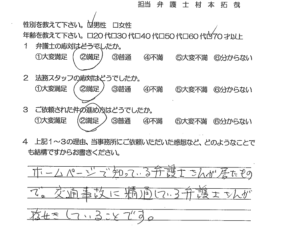 担当 弁護士 村本拓哉
性別を教えて下さい。☑男性 □女性
年齢を教えて下さい。□20代□30代□40代□50代□60代☑70才以上
1 弁護士の応対はどうでしたか。
①大変満足 ②満足 ③普通 ④不満 ⑤大変不満 ⑥分からない
2 法務スタッフの応対はどうでしたか。
①大変満足 ②満足 ③普通 ④不満 ⑤大変不満 ⑥分からない
3 ご依頼された件の進め方はどうでしたか。
①大変満足 ②満足 ③普通 ④不満 ⑤大変不満 ⑥分からない
4 上記1～3の理由、当事務所にご依頼いただいた感想など、どのようなことで
も結構ですからお書きください。
ホームページで知っている弁護士さんが居たもの
で。交通事故に精通している弁護士さんが
していることです。